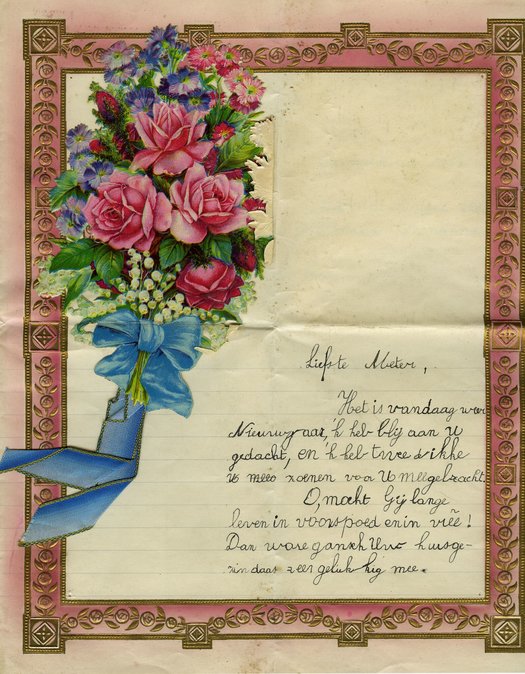 Liefste Meter,
Het is vandaag weer
Nieuwjaar, 'k heb blij aan U
gedacht, en 'k heb twee dikke
zoenen voor U meegebracht.
O, mocht Gij lange
leven in voorspoed en in vreê!
Dan ware gansch Uw huisge-
zin daar zeer geluk kig mee.